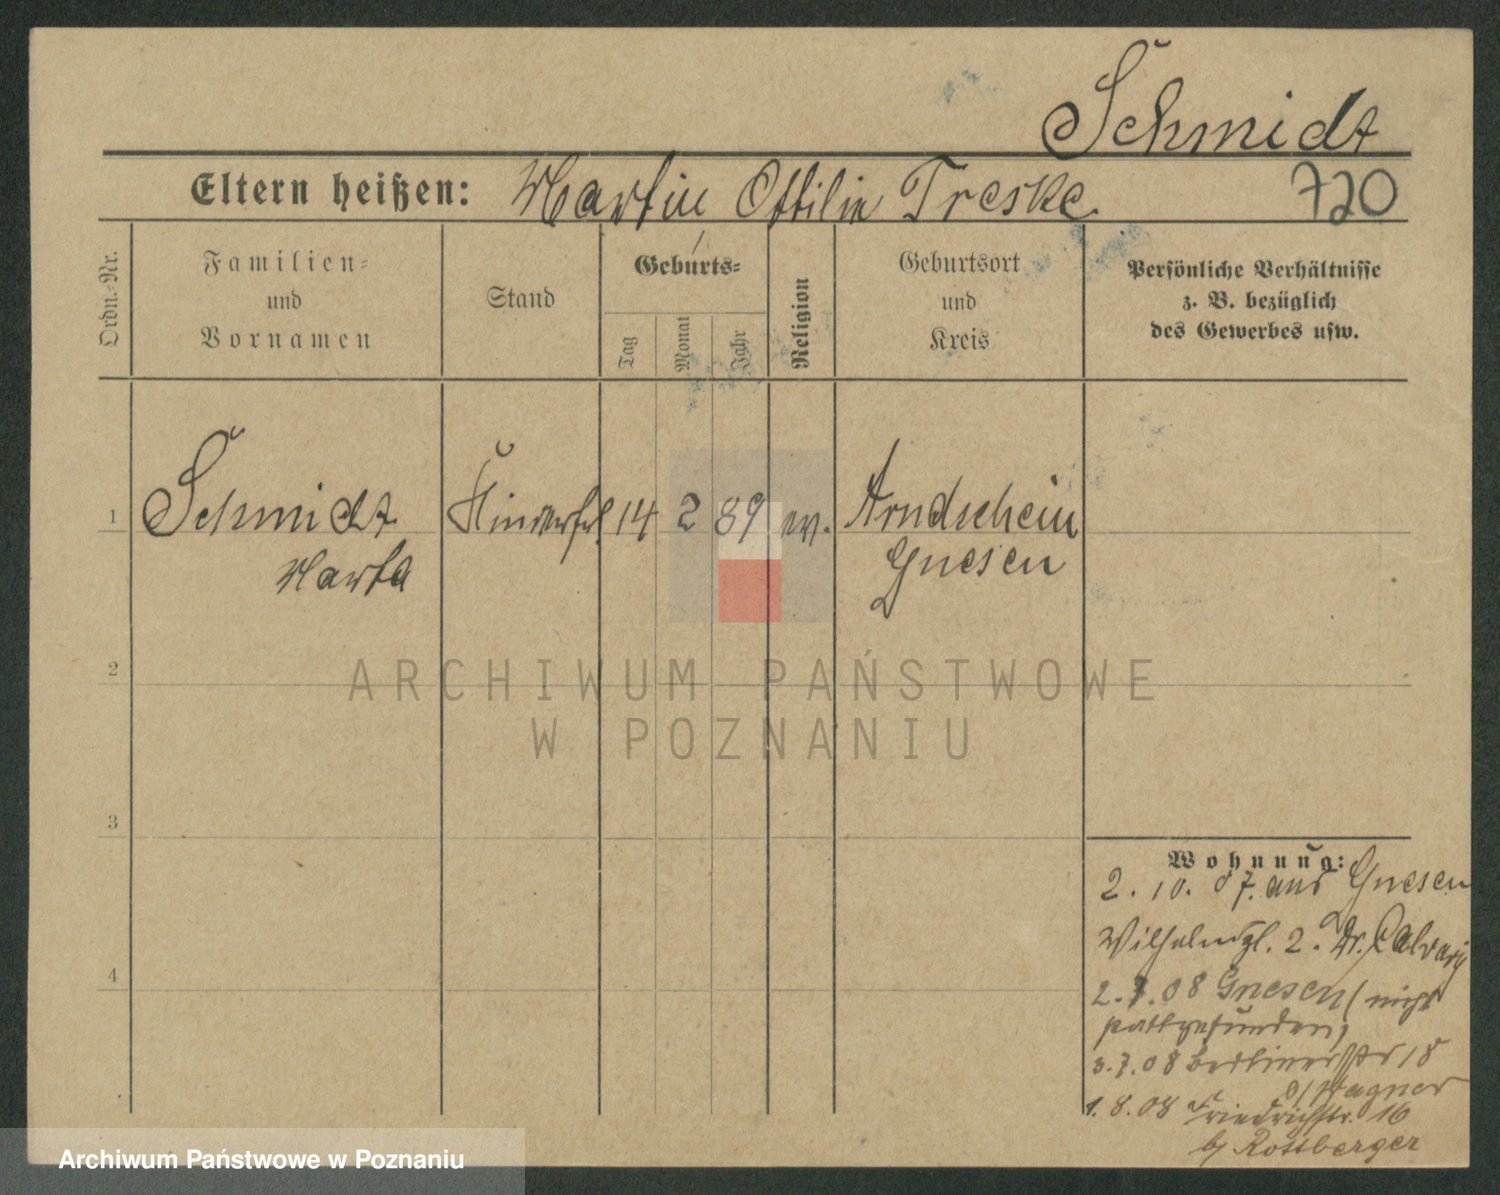 Schmidt
Eltern heißen: Martin Ottilie Treske
720
Ordn.-Nr.
Familien-
und
Vornamen
Stand
Geburts-
Tag
Monat
Jahr
Religion
Geburtsort
und
Kreis
Persönliche Verhältnisse
z. B. bezüglich
des Gewerbes usw.
1 Schmidt Kinderfrl 14 2 89 ev. Arndshein
Marta Gnesen
2
ARCHIWUM PAŃSTWOWE
W POZNANIU
3
4
Wohnung:
2. 10. 07. aus Gnesen
Wilhelmspl. 2. Dr. Calvary
2. 7. 08 Gnesen (nicht
stattgefunden)
3. 7. 08 Berlinerstr 18
b/ Wagner
1. 8. 08 Friedrichstr. 16
b/ Rossberger
Archiwum Państwowe w Poznaniu